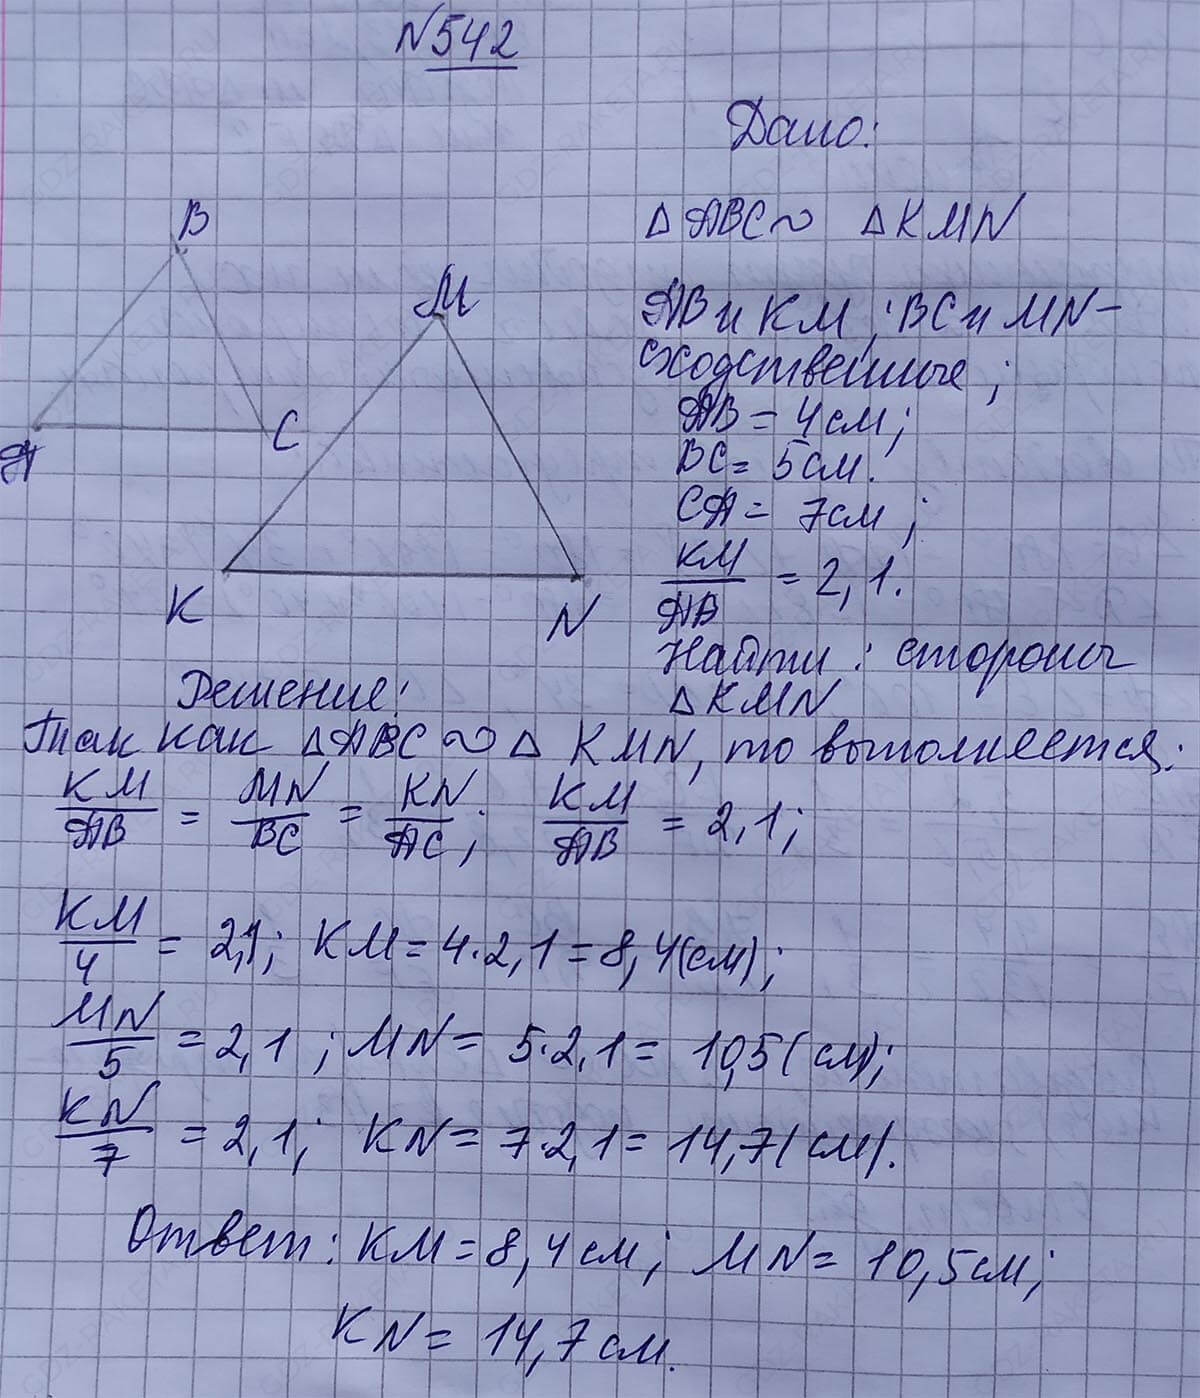 N542
Дано:
B
Δ ABC ∾ Δ KMN
M
AB и KM ; BC и MN –
сходственные ;
AB = 4 см ;
C
A
BC = 5 см.
CA = 7 см ;
KM/AB = 2,1.
K
N
Найти : стороны
Δ KMN
Решение:
Так как Δ ABC ∾ Δ KMN, то выполняется:
KM/AB = MN/BC = KN/AC ; KM/AB = 2,1 ;
KM/4 = 2,1 ; KM = 4·2,1 = 8,4 (см) ;
MN/5 = 2,1 ; MN = 5·2,1 = 10,5 (см) ;
KN/7 = 2,1 ; KN = 7·2,1 = 14,7 (см).
Ответ : KM = 8,4 см ; MN = 10,5 см ;
KN = 14,7 см.